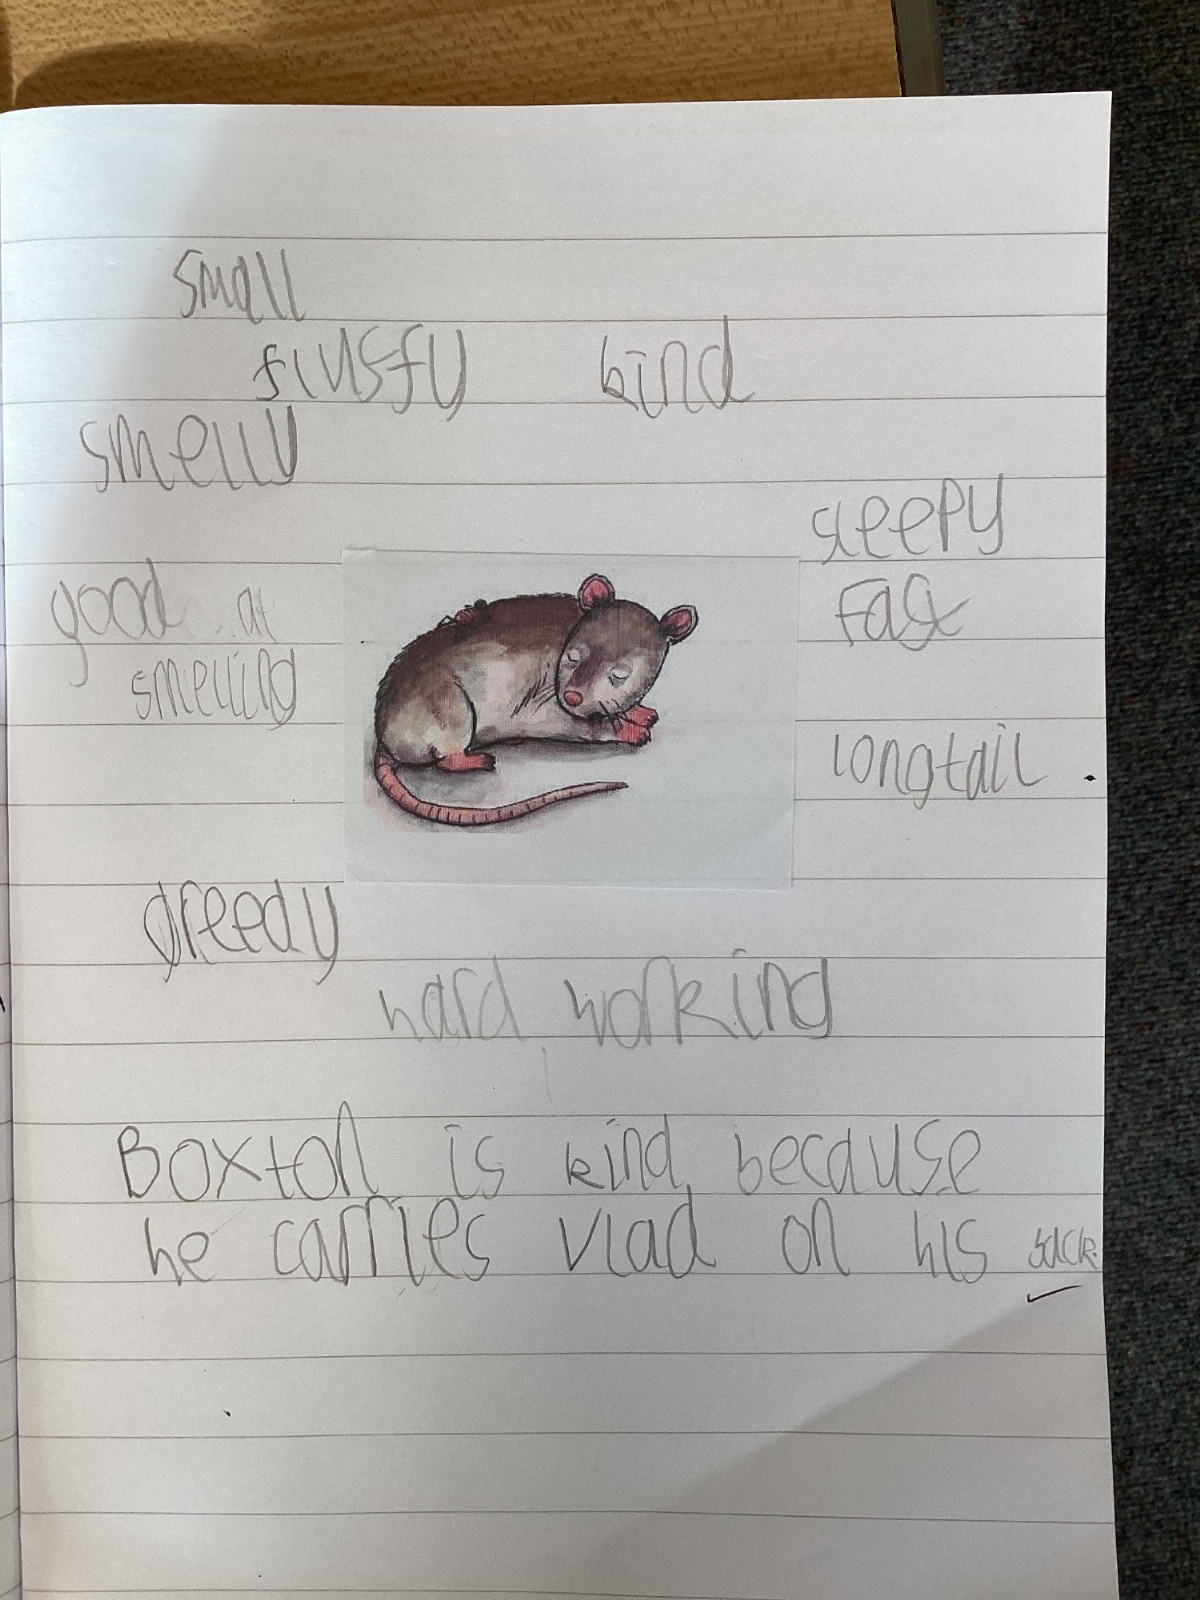 small
flusfy kind
smelly
sleepy
good at
Fast
smelling
longtail
greedy
hard working
Boxton is kind because
he carries Vlad on his back.